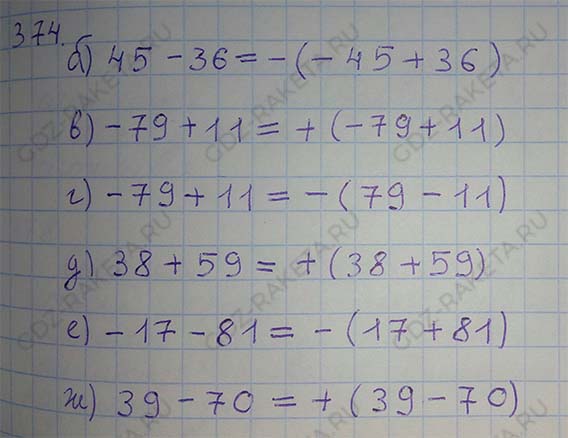 374.
б) 45 - 36 = - (- 45 + 36)
в) - 79 + 11 = + (- 79 + 11)
г) - 79 + 11 = - (79 - 11)
д) 38 + 59 = + (38 + 59)
е) - 17 - 81 = - (17 + 81)
ж) 39 - 70 = + (39 - 70)
GDZ-RAKETA.RU